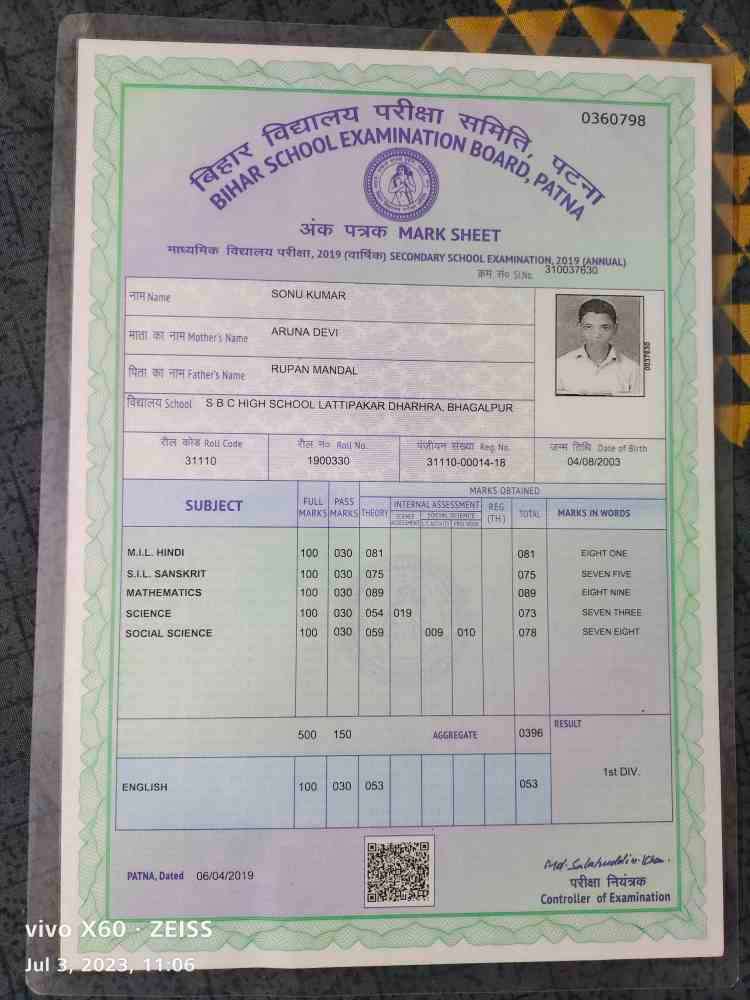 0360798
बिहार विद्यालय परीक्षा समिति, पटना
BIHAR SCHOOL EXAMINATION BOARD, PATNA
अंक पत्रक MARK SHEET
माध्यमिक विद्यालय परीक्षा, 2019 (वार्षिक) SECONDARY SCHOOL EXAMINATION, 2019 (ANNUAL)
क्रम सं० Sl.No. 310037630
नाम Name SONU KUMAR
माता का नाम Mother's Name ARUNA DEVI
पिता का नाम Father's Name RUPAN MANDAL
0037630
विद्यालय School S B C HIGH SCHOOL LATTIPAKAR DHARHRA, BHAGALPUR
रौल कोड Roll Code रौल न० Roll No. पंजीयन संख्या Reg No. जन्म तिथि Date of Birth
31110 1900330 31110-00014-18 04/08/2003
MARKS OBTAINED
SUBJECT FULL MARKS PASS MARKS THEORY INTERNAL ASSESSMENT REG (TH) TOTAL MARKS IN WORDS
M.I.L. HINDI 100 030 081 081 EIGHT ONE
S.I.L. SANSKRIT 100 030 075 075 SEVEN FIVE
MATHEMATICS 100 030 089 089 EIGHT NINE
SCIENCE 100 030 054 019 073 SEVEN THREE
SOCIAL SCIENCE 100 030 059 009 010 078 SEVEN EIGHT
500 150 AGGREGATE 0396 RESULT
1st DIV.
ENGLISH 100 030 053 053
PATNA, Dated 06/04/2019
Md. Salahuddin Khan.
परीक्षा नियंत्रक
Controller of Examination
vivo X60 · ZEISS
Jul 3, 2023, 11:06